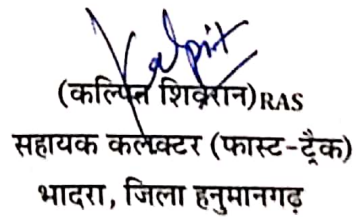 Kalpit
(कल्पित शिवरान) RAS
सहायक कलेक्टर (फास्ट-ट्रैक)
भादरा, जिला हनुमानगढ़